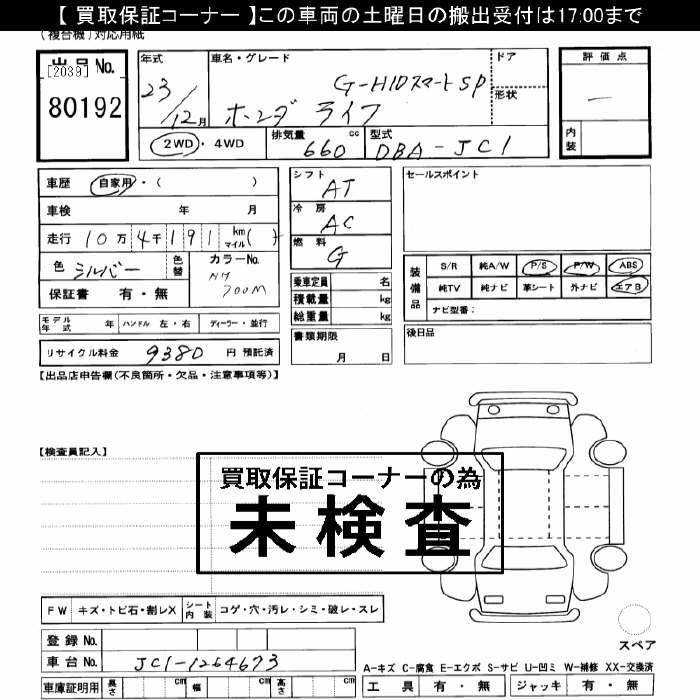 【 買取保証コーナー 】この車両の土曜日の搬出受付は17:00まで
(複合機)対応用紙
出品No.
[2039]
80192
年式 23/12月
車名・グレード G-HIDスマートSP
ホンダ ライフ
ドア
形状
評価点
内装
2WD・4WD
排気量 660 cc
型式 DBA-JC1
車歴 自家用・( )
車検 年 月
走行 10万4千191 km マイル( )
色 シルバー
色替
カラーNo. NH700M
保証書 有・無
シフト AT
冷房 AC
燃料 G
乗車定員 名
積載量 kg
総重量 kg
書類期限 月 日
セールスポイント
装備品
S/R 純A/W P/S P/W ABS
純TV 純ナビ 革シート 外ナビ エアB
ナビ型番:
後日品
モデル年式 年 ハンドル 左・右 ディーラー・並行
リサイクル料金 9380 円 預託済
【出品店申告欄(不良箇所・欠品・注意事項等)】
【検査員記入】
買取保証コーナーの為
未検査
FW キズ・トビ石・割レX シート内装 コゲ・穴・汚レ・シミ・破レ・スレ
登録No.
車台No. JC1-1264673
車庫証明用 長さ cm 幅 cm 高さ cm
スペア
A-キズ C-腐食 E-エクボ S-サビ U-凹ミ W-補修 XX-交換済
工具 有・無 ジャッキ 有・無